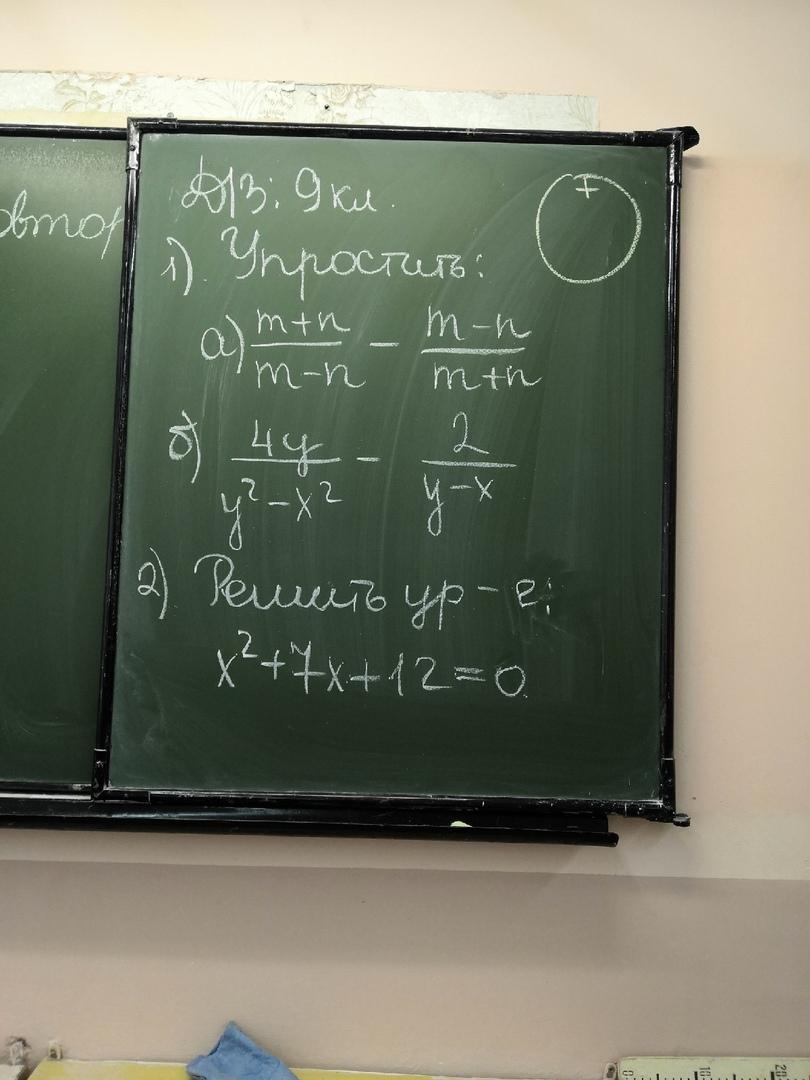 Д/З: 9 кл.
1) Упростить:
а) (m+n)/(m-n) - (m-n)/(m+n)
б) 4y/(y²-x²) - 2/(y-x)
2) Решить ур-е:
x²+7x+12=0
0 10 20